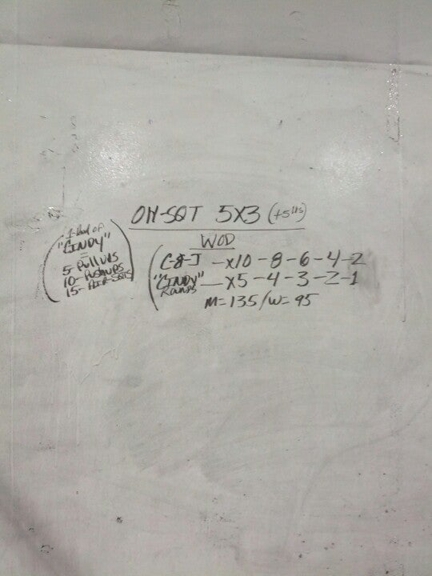 OH-SQT 5X3 (+5lbs)
1 Rnd of
"CINDY"
=
5-Pullups
10-Pushups
15-AIR-SQTS
WOD
C-&-J — X10-8-6-4-2
"CINDY" — X5-4-3-2-1
Rounds
M=135/W=95